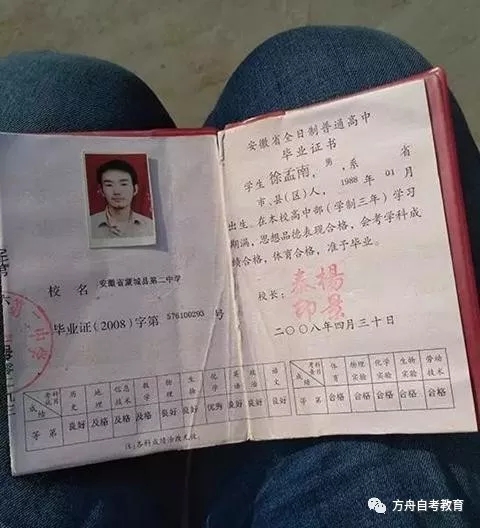 校 名 安徽省蒙城县第二中学
毕业证(2008)字第 576100293 号
考科成绩科目 历史 地理 信息技术 数学 物理 生物 化学 英语 政治 语文
等第 良好 及格 及格 及格 良好 良好 优秀 良好 良好 良好
注:各科成绩涂改无效.
安徽省全日制普通高中
毕业证书
学生徐孟南,男,系 省
市、县(区)人,1988 年 01 月
出生。在本校高中部(学制三年)学习
期满,思想品德表现合格,会考学科成
绩合格,体育合格,准予毕业。
校长:
二〇〇八年四月三十日
成绩 考查科目 体育 物理实验 化学实验 生物实验 劳动技术
等第 合格 合格 合格 合格 合格
方舟自考教育